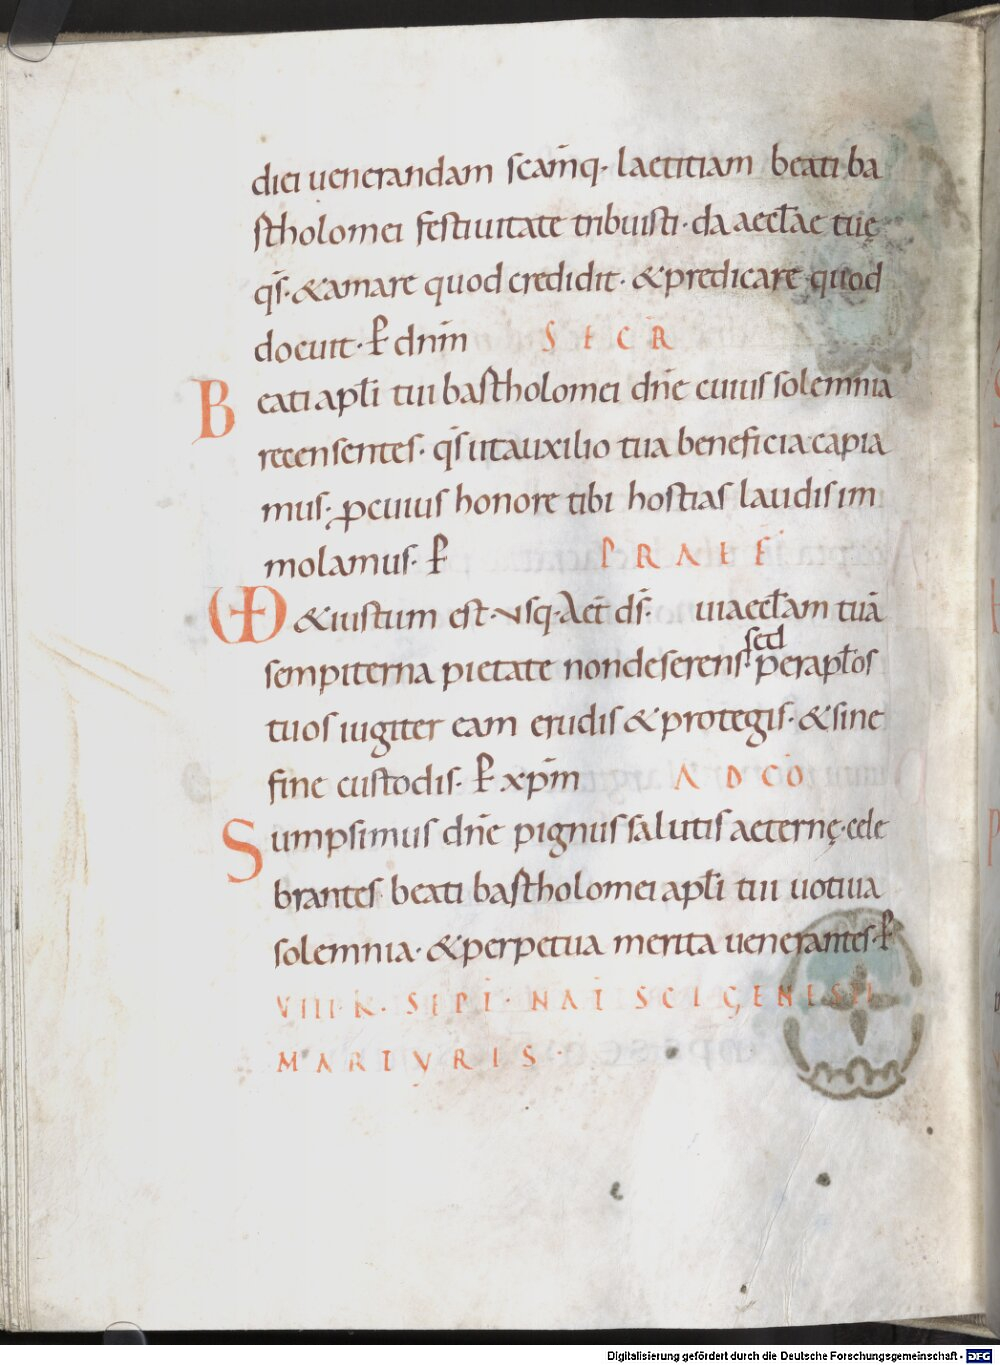 diei uenerandam scam̄q· laetitiam beati ba
stholomei festiuitate tribuisti· da aeccl̄ae tuę
qs̄· &amare quod credidit· &predicare quod
docuit· P̄ dnm̄ SECR̄
Beati apl̄i tui bastholomei dn̄e cuius solemnia
recensentes· qs̄ ut auxilio tua beneficia capia
mus· ꝓ cuius honore tibi hostias laudis im
molamus· P̄ PRAEF̄
UD &iustum est· usq· Aet̄ ds̄· ui aeccl̄am tuā
sed
sempiterna pietate non deserens· per apl̄os
tuos iugiter eam erudis &protegis· &sine
fine custodis· P̄ xpm̄ AD CŌ
Sumpsimus dn̄e pignus salutis aeternę· cele
brantes beati bastholomei apl̄i tui uotiua
solemnia· &perpetua merita uenerantes· P̄
VIII· K· SEPT̄· NAT̄ SCI GENESII
MARTYRIS·
Digitalisierung gefördert durch die Deutsche Forschungsgemeinschaft - DFG